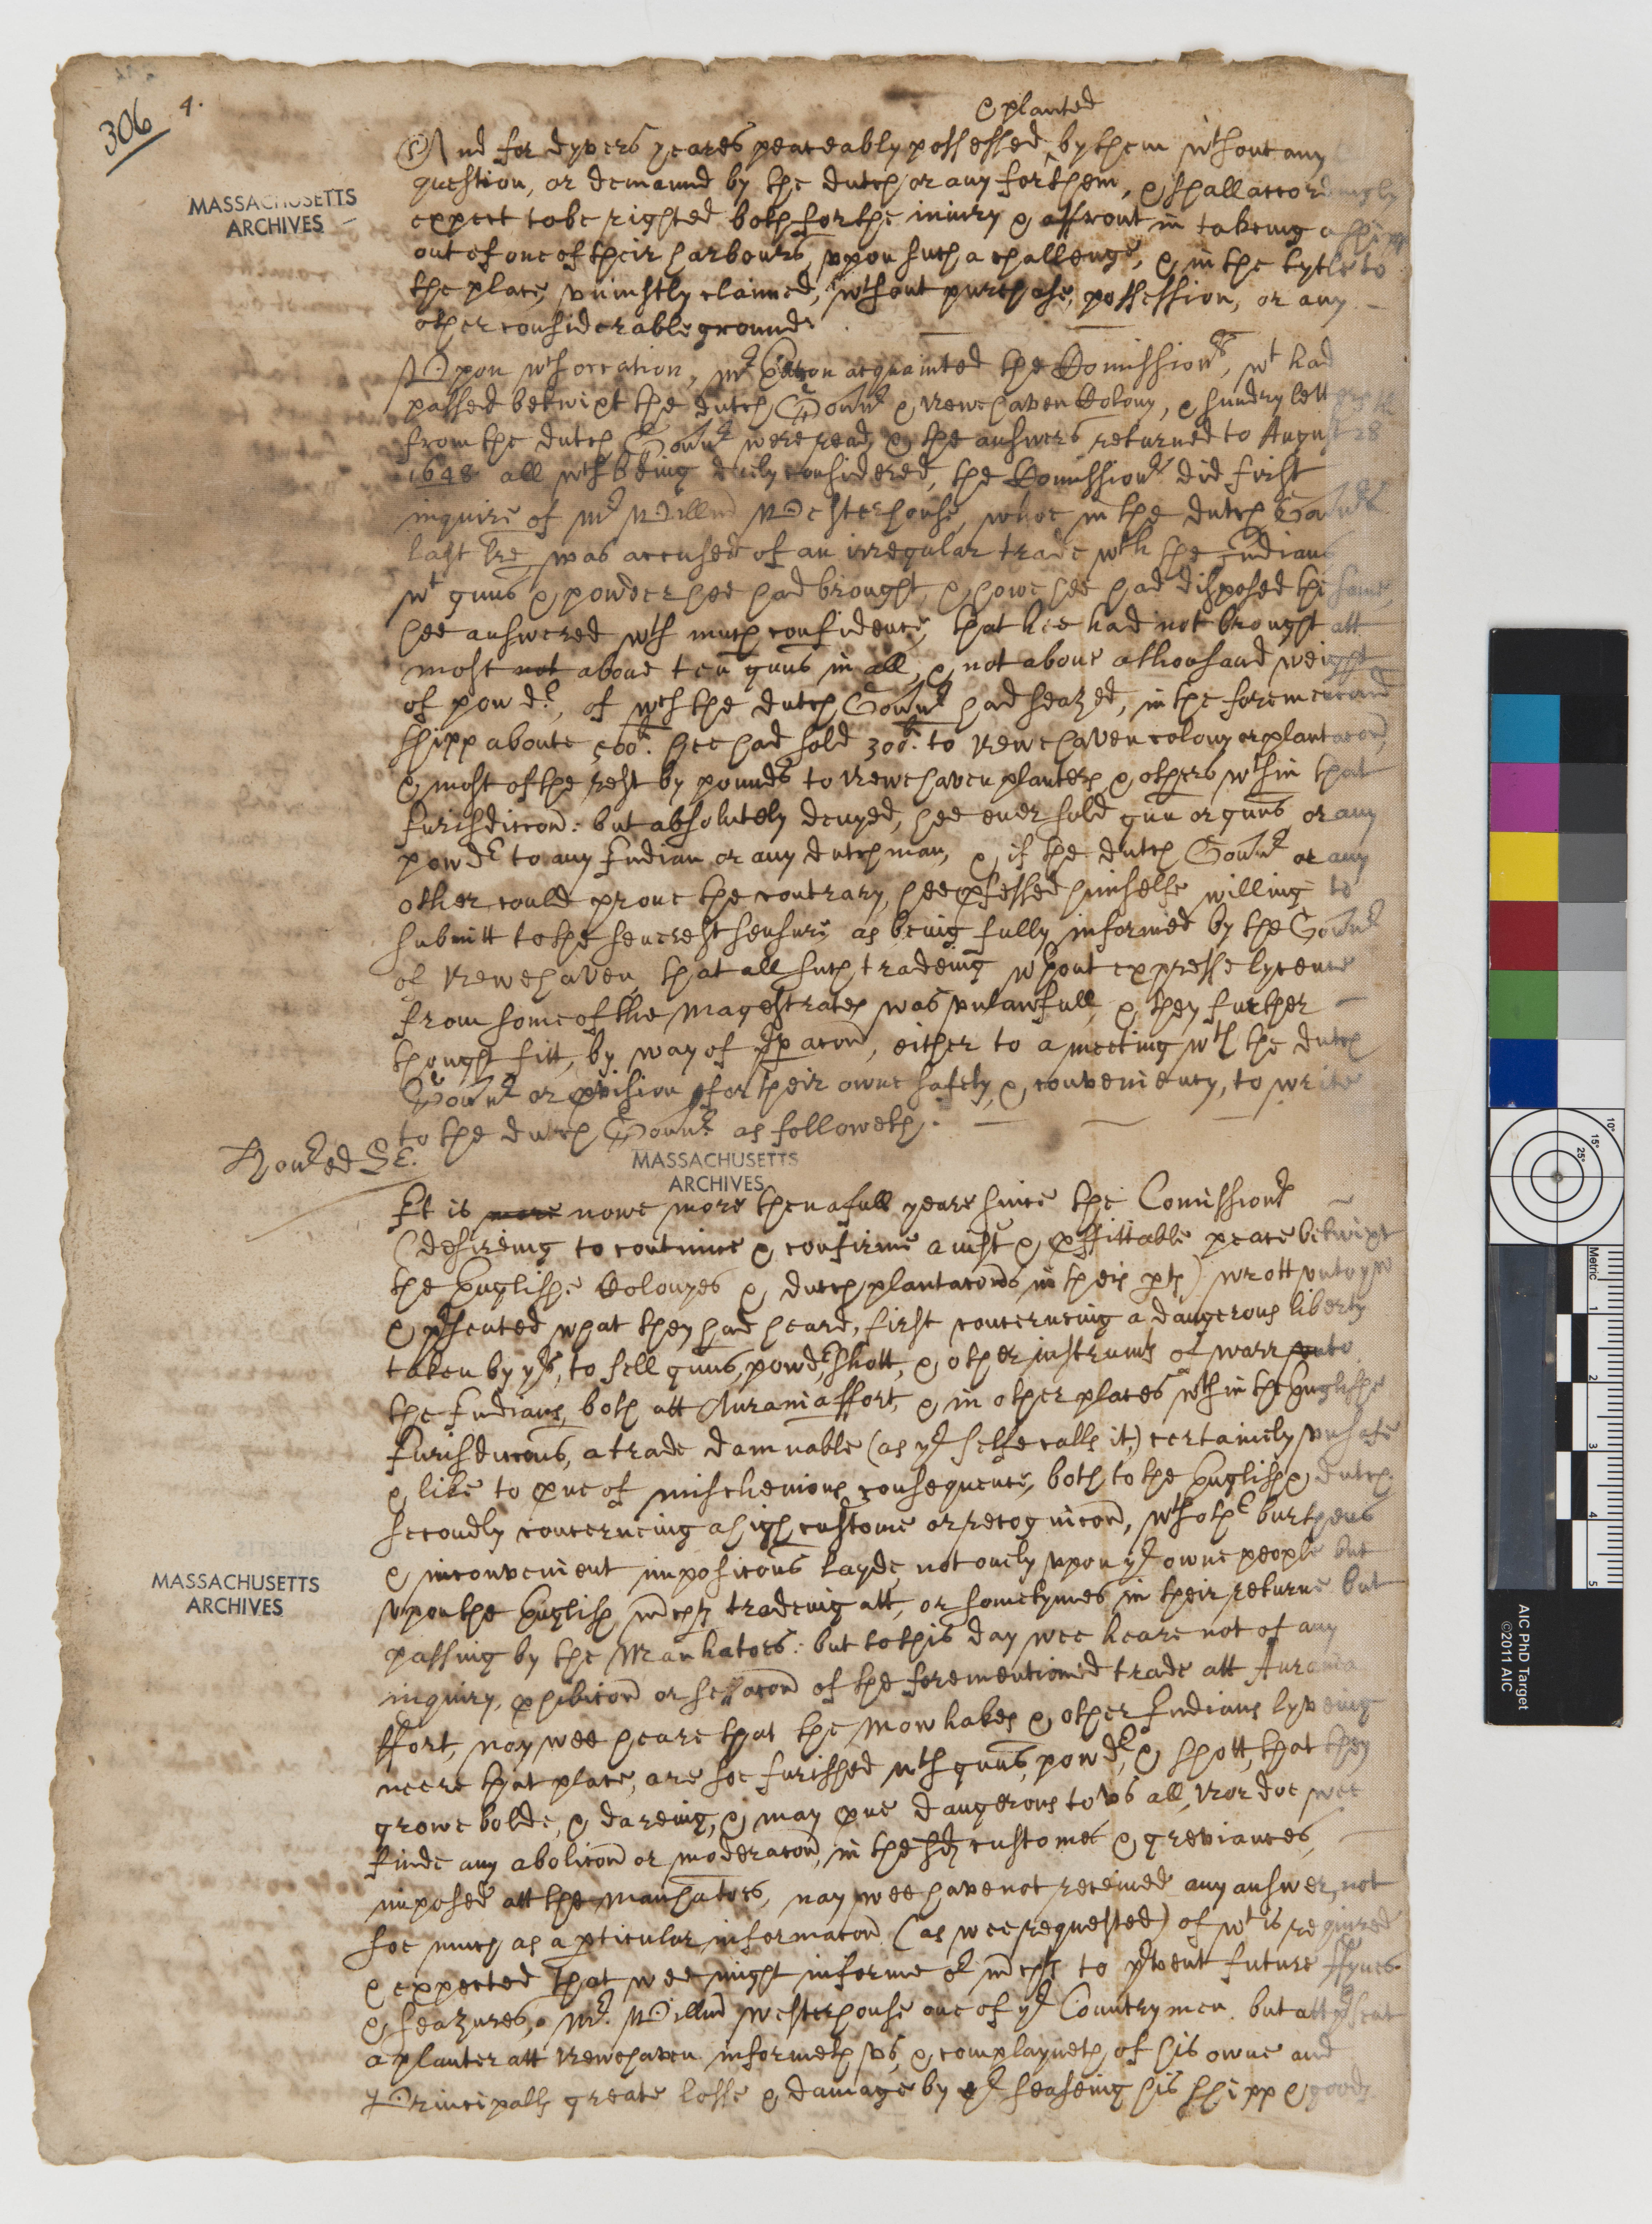 306
4.
MASSACHUSETTS
ARCHIVES
& planted
And for dyvers yeares peaceably possessed by them wthout any
question, or demaund by the dutch or any for them, & shall accordingly
expect to be righted both for the iniury & affront in takeing a shipp
out of one of their harbours, vpon such a challenge, & in the tytle to
the place, vniustly claimed, wthout purchase, possession, or any
other considerable ground.
Vpon wch occation, Mr Eaton acquainted the Comissionrs, wt had
passed betwixt the dutch Gounr & Newehaven Colony, & sundry letters
from the dutch Gounr were read, & the answers returned to August 28
1648 all wch being duly considered, the Comissionrs did first
inquire of Mr Willm Westerhouse, whoe in the dutch Gounrs
last lre was accused of an irregular trade wth the Indians
wt guns & powder hee had brought, & howe hee had disposed the same,
hee answered wth much confidence, that hee had not brought att
most not aboue ten guns in all, & not aboue a thousand weight
of powdr, of wch the dutch Gounr had seazed, in the forementioned
shipp aboute 500l. hee had sold 300l. to Newehaven colony or plantacon,
& most of the rest by pounds to Newehaven planters & others wthin that
Jurisdiccon: but absolutely denyed, hee euer sold gun or guns or any
powdr to any Indian or any dutchman, & if the dutch Gounr or any
other could proue the contrary, hee pfessed himselfe willing to
submitt to the seuerest sensure as being fully informed by the Gounr
of Newehaven, that all such tradeing wthout expresse lycence
from some of the Magestrates was vnlawfull, & they further
thought fitt, by way of ppacon, either to a meeting wth the dutch
Gounr or pvision for their owne safety & conveniency, to write
to the dutch Gounr as followeth.
Honred Sr.
MASSACHUSETTS
ARCHIVES
It is more nowe more then a full yeare since the Comissionrs
(desireing to continue & confirme a iust & pfittable peace betwixt
the Englishe Colonyes & dutch plantacons in theis pts) wrott vnto yow
& psented what they had heard, first concerneing a dangerous liberty
taken by yrs, to sell guns, powdr, shott, & other instrumts of warr vnto
the Indians, both att Aurania ffort, & in other places wthin the Englishe
Jurisdiccons, a trade damnable (as yr selfe calls it,) certainely vnsafe
& like to pue of mischeuious consequence, both to the English & dutch.
Secondly concerneing a high custome or recognicon, wth othr burthens
& inconvenient imposicons layde, not onely vpon yr owne people but
vpon the English mchts tradeing att, or sometymes in their returne but
passing by the Manhatoes: but to this day wee heare not of any
inquiry, phibicon or of the forementioned trade att Aurania
ffort, nay wee heare that the Mowhakes & other Indians lyveing
neere that place, are soe furished wth guns, powdr, & shott, that they
growe bolde, & dareing, & may pue dangerous to vs all, Nor doe wee
finde any abolicon or moderacon, in the sd customes & greviances,
imposed att the Manhatoes, nay wee have not received any answer, not
soe much as a pticular informacon (as wee requested) of wt is required
& expected that wee might informe or mchts to pvent future ffynes
& seazures, Mr. Willm Westerhouse one of yr Countrymen. but att psent
a planter att Newehaven informeth vs, & complayneth of his owne and
Principalls greate losse & damage by yr seaseing his shipp & goods
MASSACHUSETTS
ARCHIVES
AIC PhD Target
©2011 AIC
Metric
1
2
3
4
5
10°
15°
25°